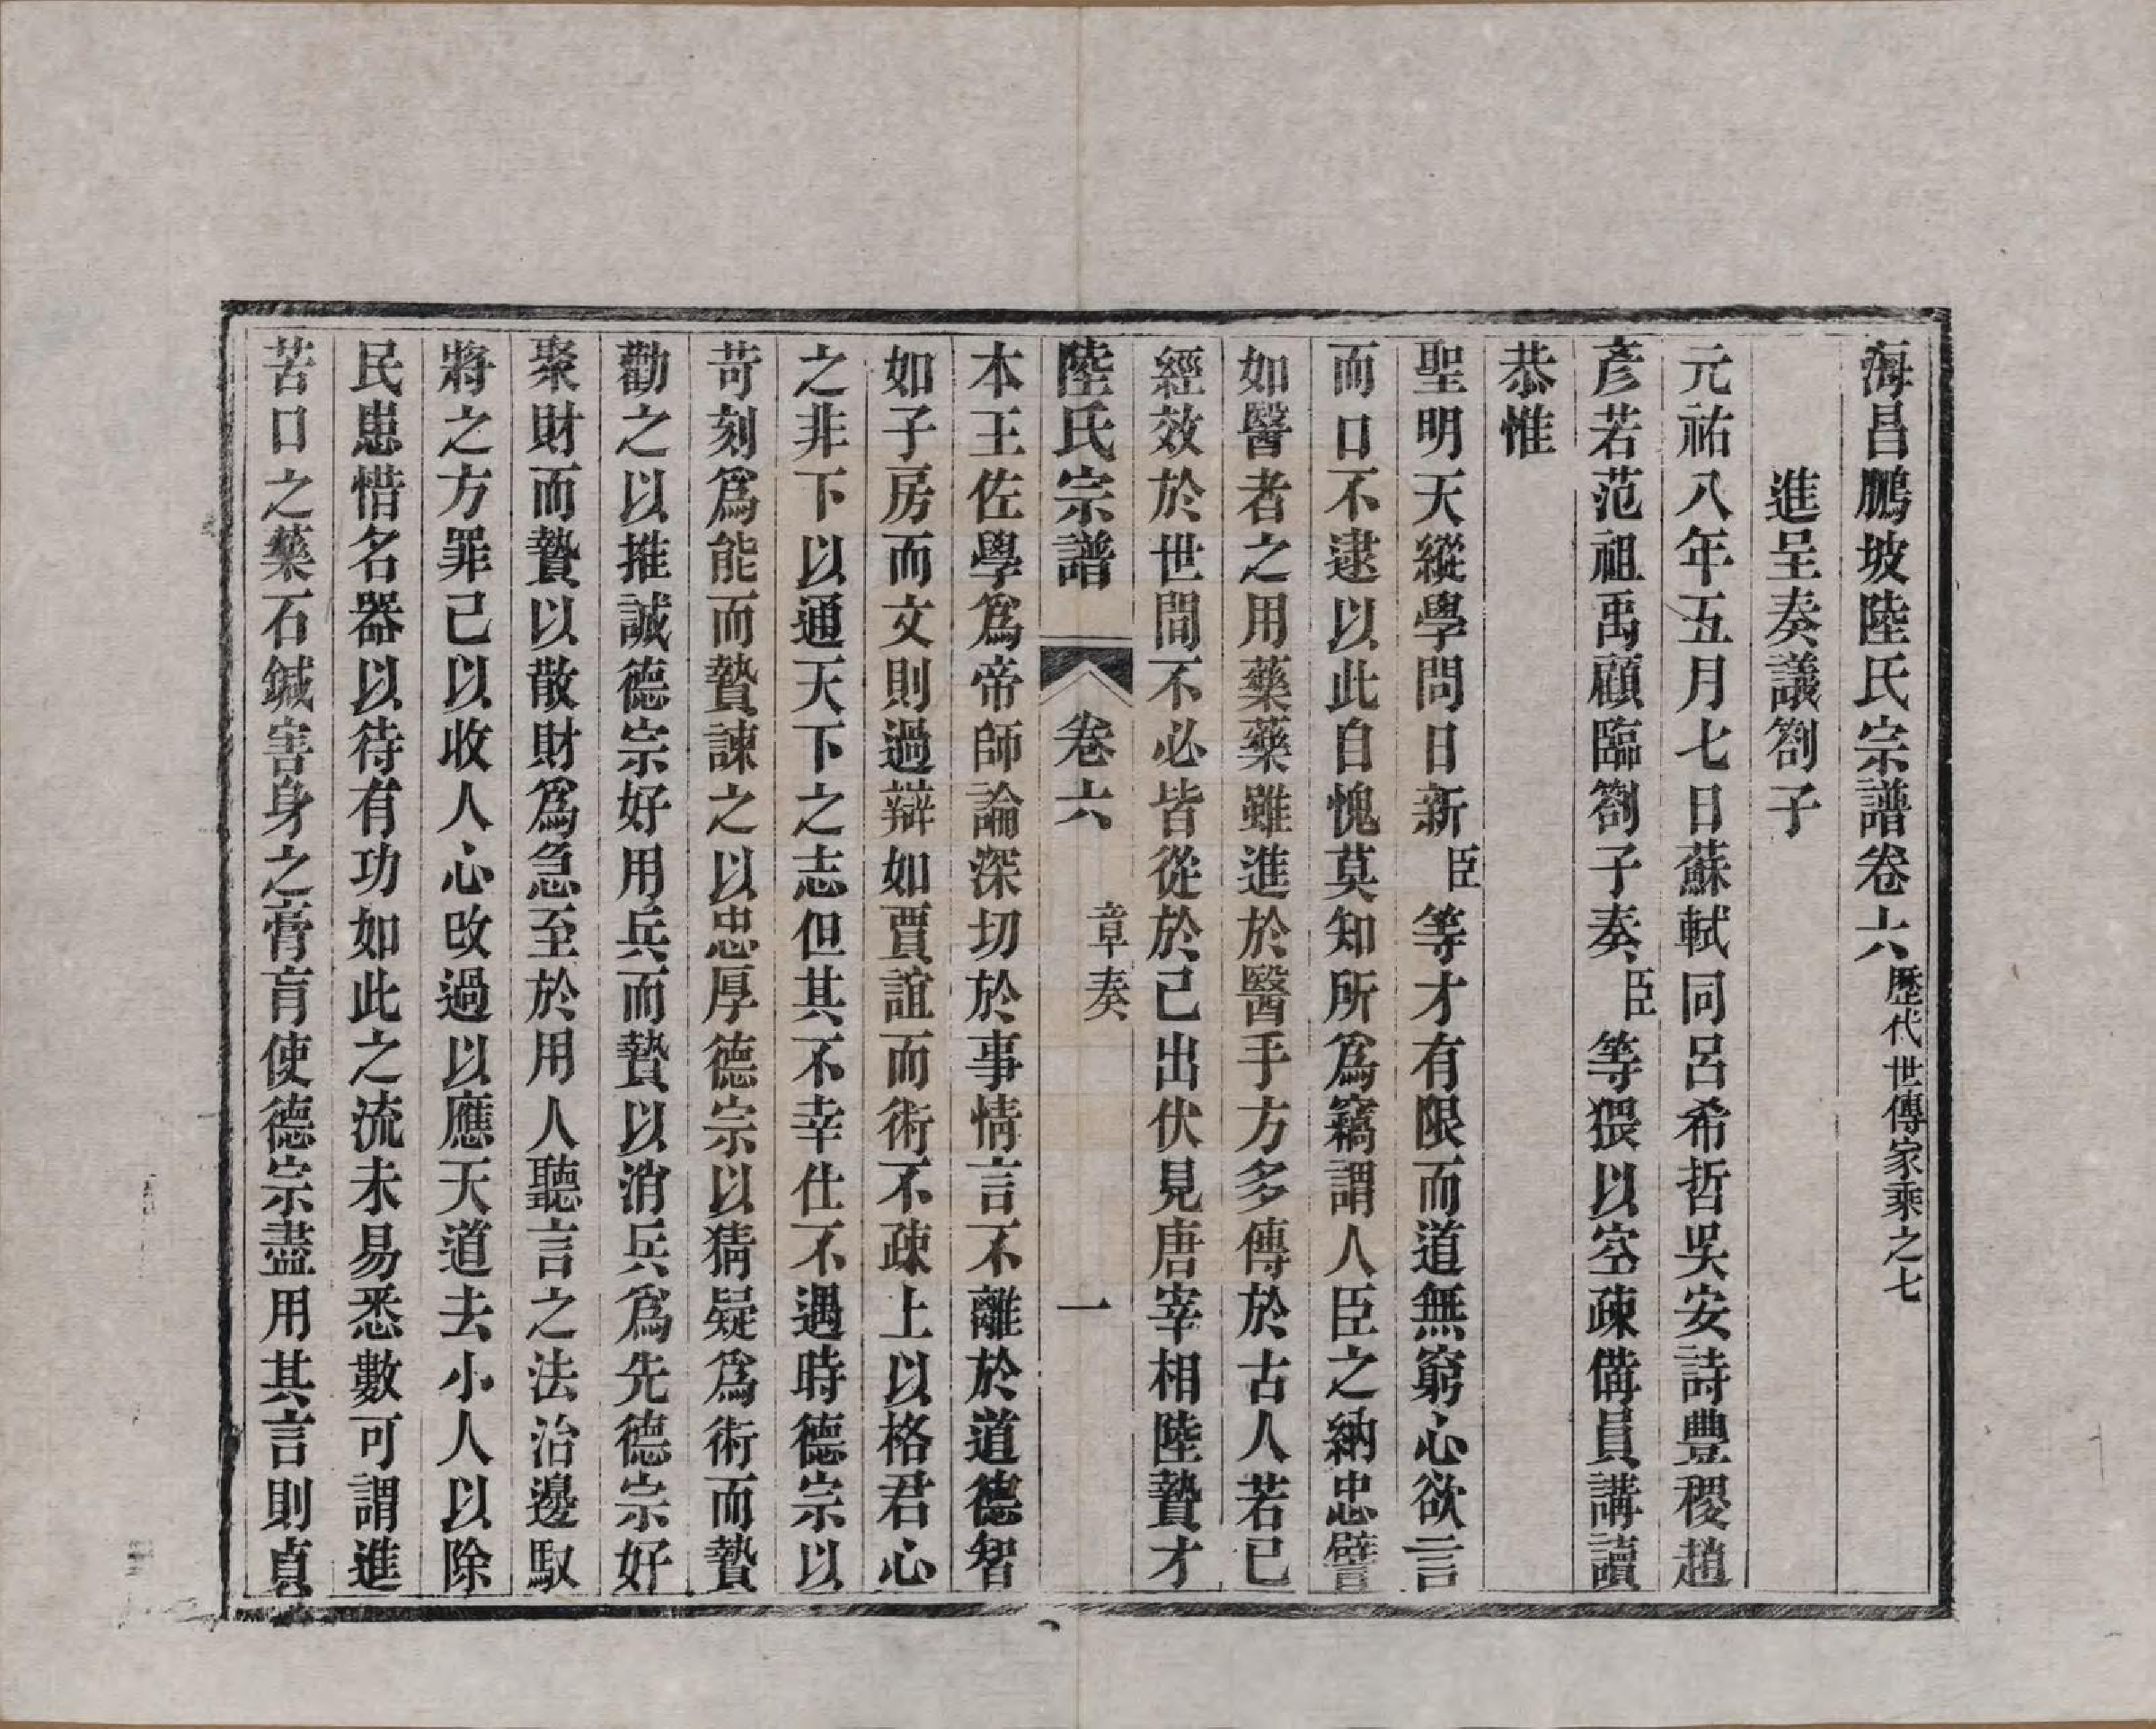 海昌鵬坡陸氏宗譜卷六歷代世傳家乘之七
進呈奏議劄子
元祐八年五月七日蘇軾同呂希哲吳安詩豐稷趙
彥若范祖禹顧臨劄子奏臣等猥以空疎備員講讀
恭惟
聖明天縱學問日新臣等才有限而道無窮心欲言
而口不逮以此自愧莫知所爲竊謂人臣之納忠譬
如醫者之用藥藥雖進於醫手方多傳於古人若已
經效於世間不必皆從於己出伏見唐宰相陸贄才
陸氏宗譜
卷六
章奏
一
本王佐學爲帝師論深切於事情言不離於道德智
如子房而文則過辯如賈誼而術不疎上以格君心
之非下以通天下之志但其不幸仕不遇時德宗以
苛刻爲能而贄諫之以忠厚德宗以猜疑爲術而贄
勸之以推誠德宗好用兵而贄以消兵爲先德宗好
聚財而贄以散財爲急至於用人聽言之法治邊馭
將之方罪己以收人心改過以應天道去小人以除
民患惜名器以待有功如此之流未易悉數可謂進
苦口之藥石鍼害身之膏肓使德宗盡用其言則貞